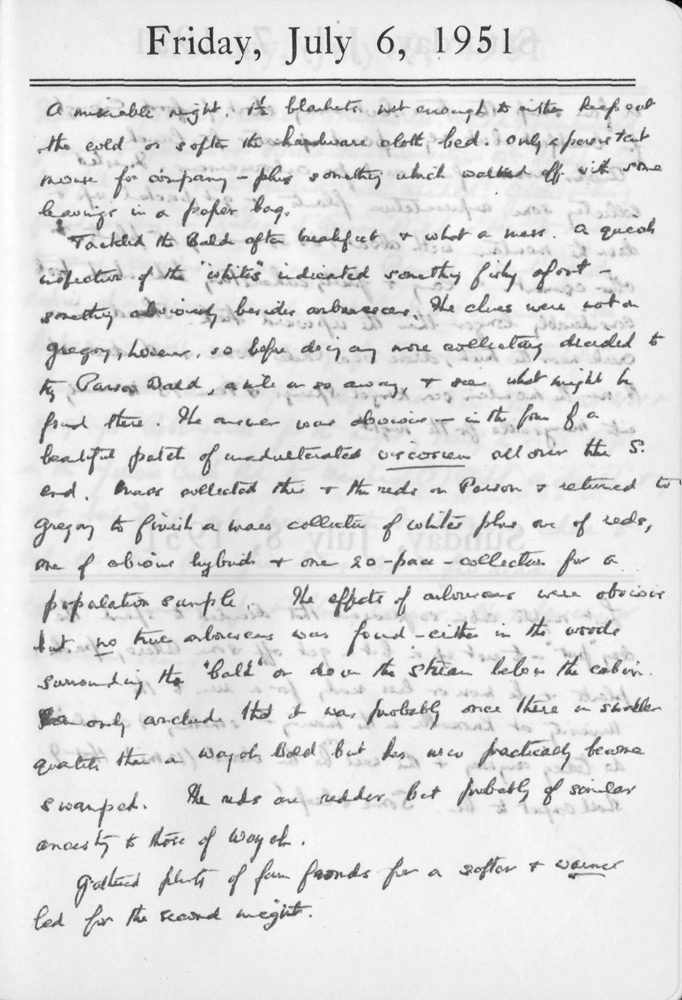 Friday, July 6, 1951
A miserable night. 1½ blankets not enough to either keep out
the cold or soften the hardware cloth bed. Only a persistent
mouse for company – plus something which walked off with some
leavings in a paper bag.
Tackled the Bald after breakfast & what a mess. A quick
inspection of the "whites" indicated something fishy afoot –
something obviously besides arborescens. The clues were not on
Gregory, however, so before doing any more collecting decided to
try Parson Bald, a mile or so away, & see what might be
found there. The answer was obvious – in the form of a
beautiful patch of unadulterated viscosum all over the S.
end. Mass collected this & the reds on Parson & returned to
Gregory to finish a mass collection of whites plus one of reds,
one of obvious hybrids & one 20-pace-collection for a
population sample. The effects of arborescens were obvious
but no true arborescens was found – either in the woods
surrounding the "bald" or down the stream below the cabin.
Can only conclude that it was probably once there in smaller
quantity than on Wayah Bald but has now practically become
swamped. The reds are redder but probably of similar
ancestry to those of Wayah.
Gathered plenty of fern fronds for a softer & warmer
bed for the second night.